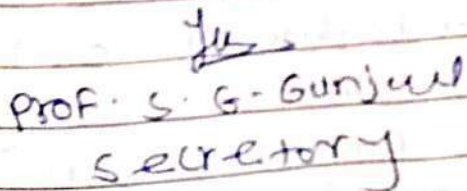 Prof. S. G. Gunjal
Secretory